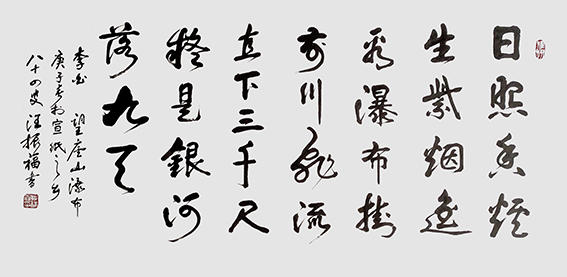 日照香炉
生紫烟遥
看瀑布挂
前川飛流
直下三千尺
疑是銀河
落九天
李白 望庐山瀑布
庚子宣纸之乡
八十四叟 汪振福书